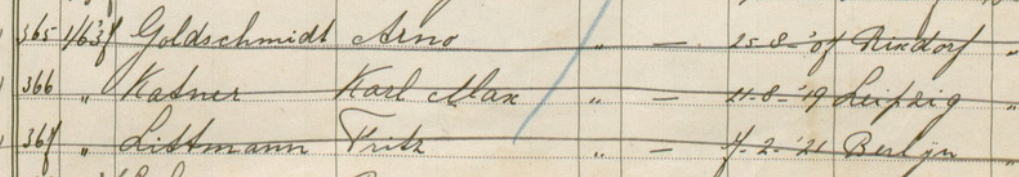 365 1/637 Goldschmidt Arno " — 25-8-'07 Rixdorf "
366 " Katner Karl Max " — 11-8-'19 Leipzig "
367 " Littmann Fritz " — 7-2-'21 Berlijn "